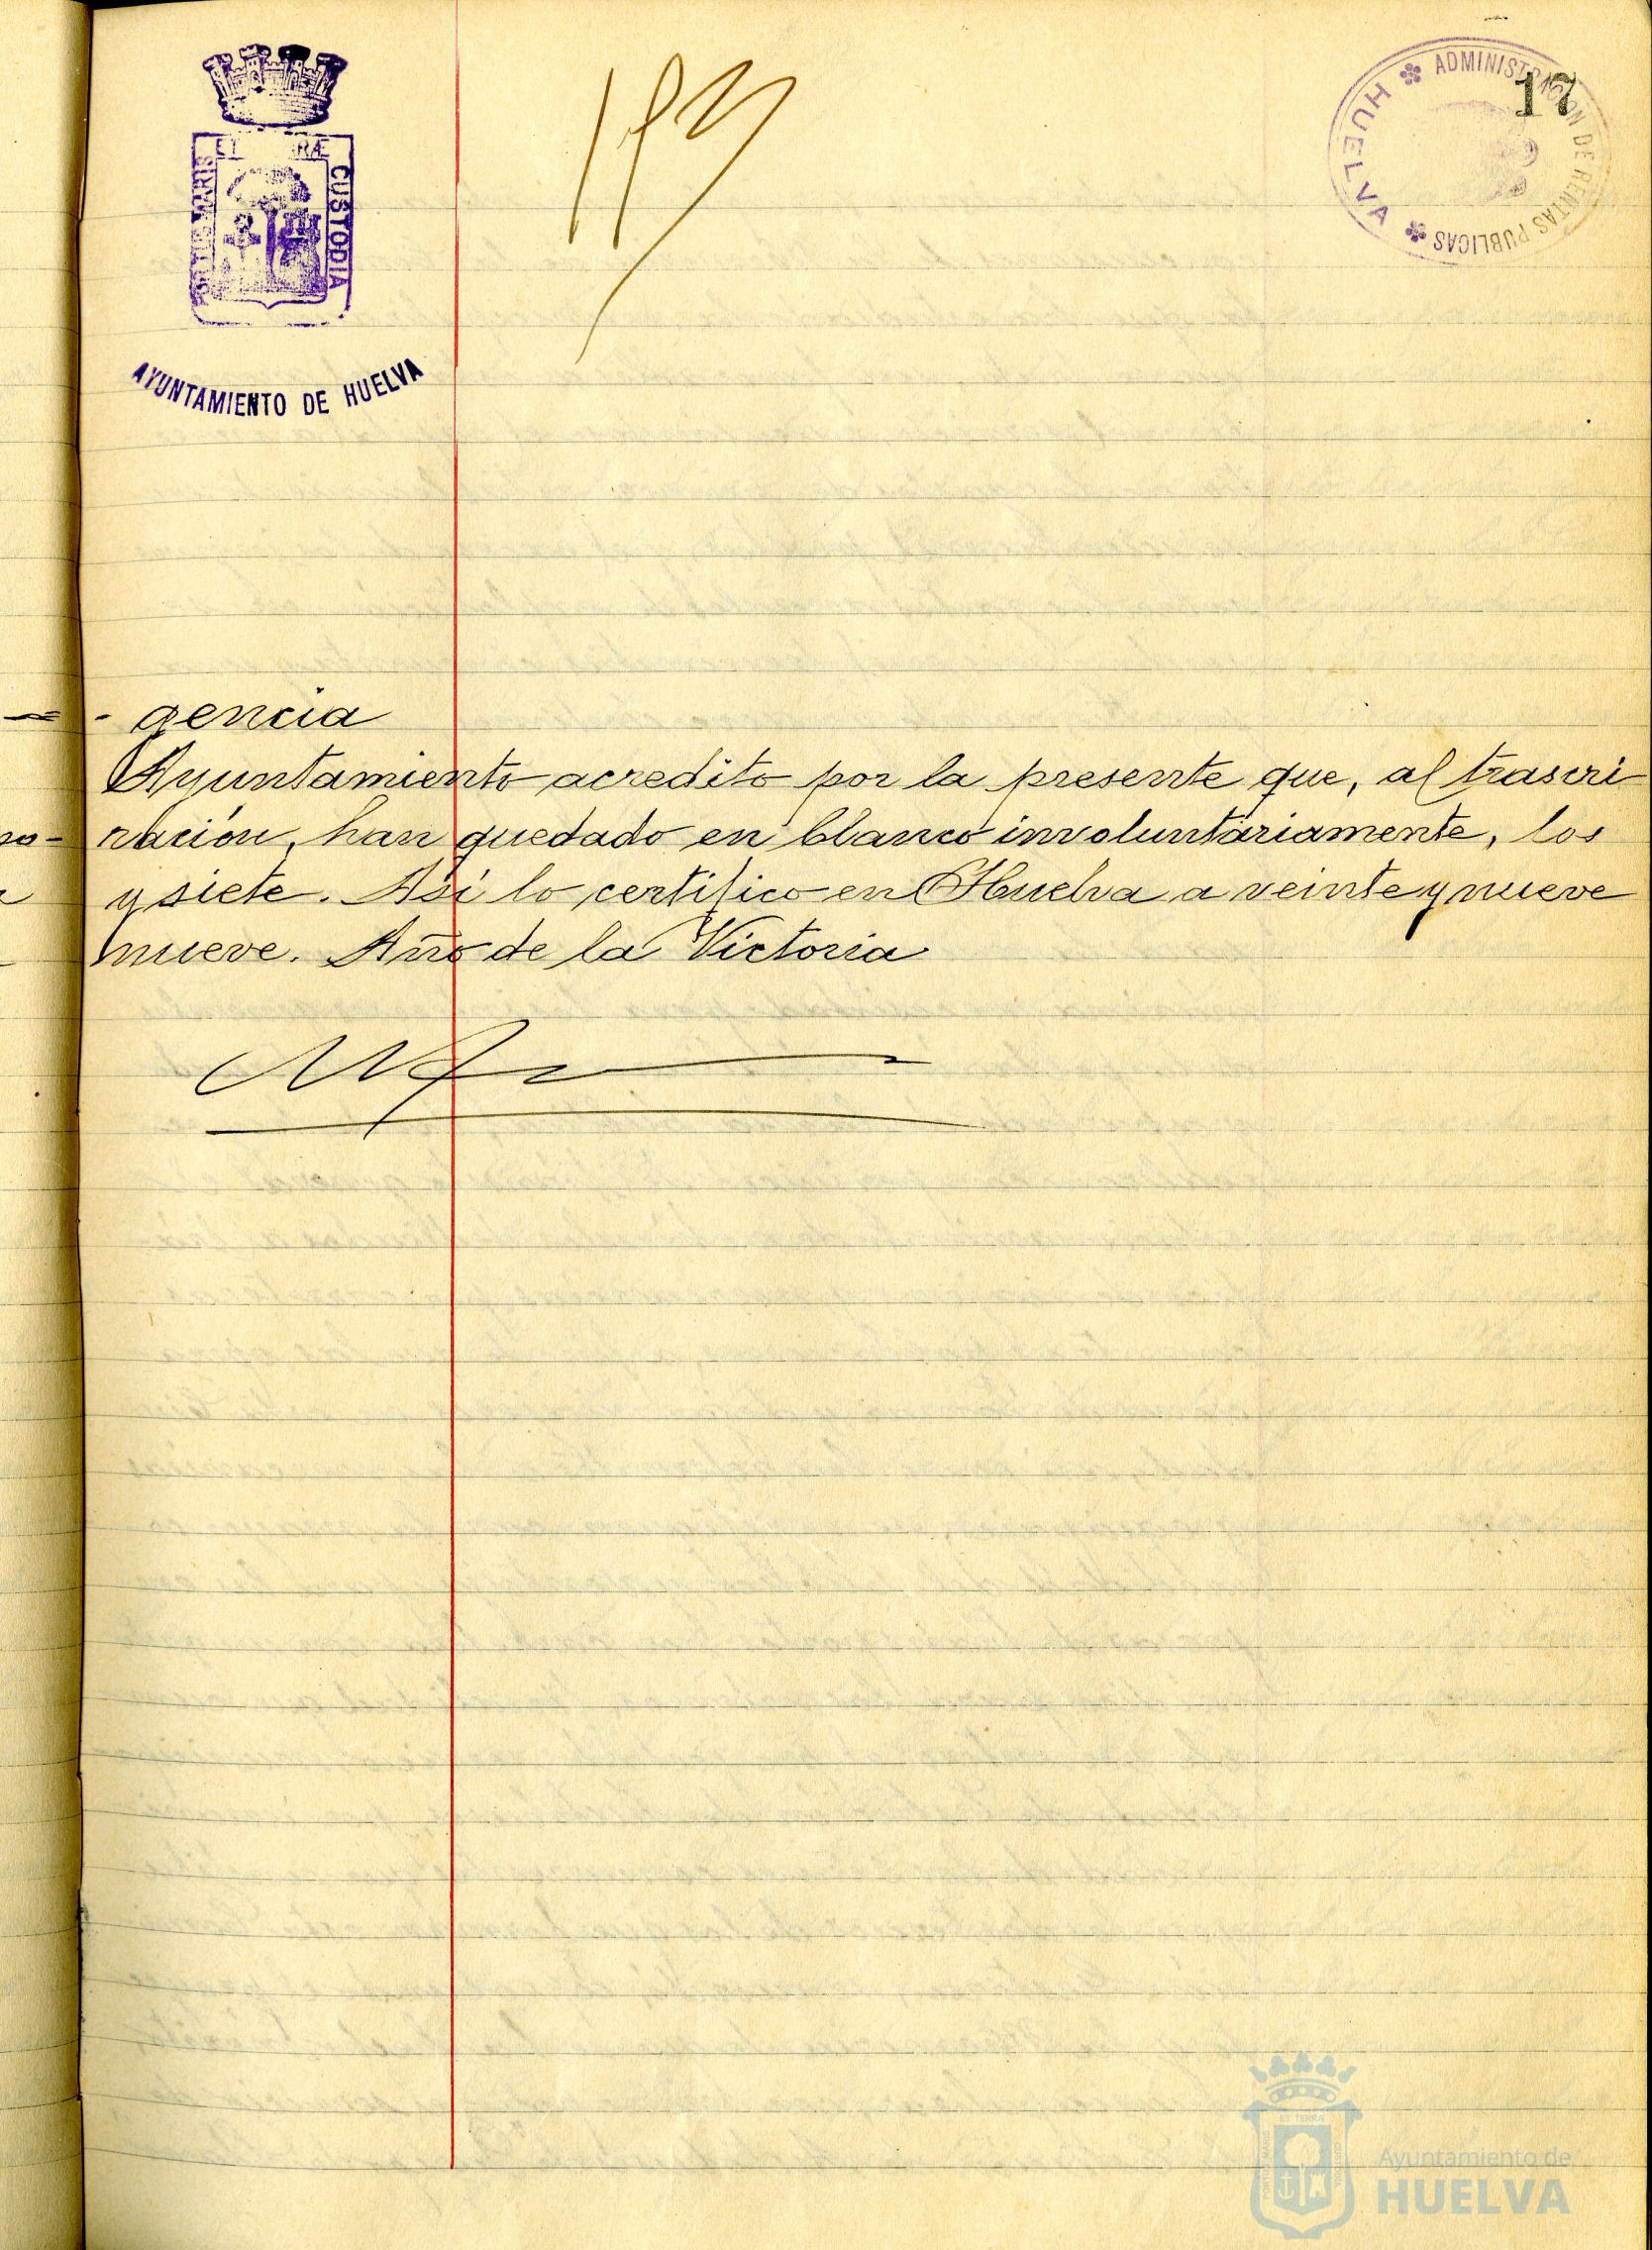 ADMINISTRACION DE RENTAS PUBLICAS
HUELVA
17
CUSTODIA
AYUNTAMIENTO DE HUELVA
- gencia
Ayuntamiento acredito por la presente que, al trascri
ración, han quedado en blanco involuntariamente, los
y siete. Así lo certifico en Huelva a veinte y nueve
nueve. Año de la Victoria
Ayuntamiento de
HUELVA